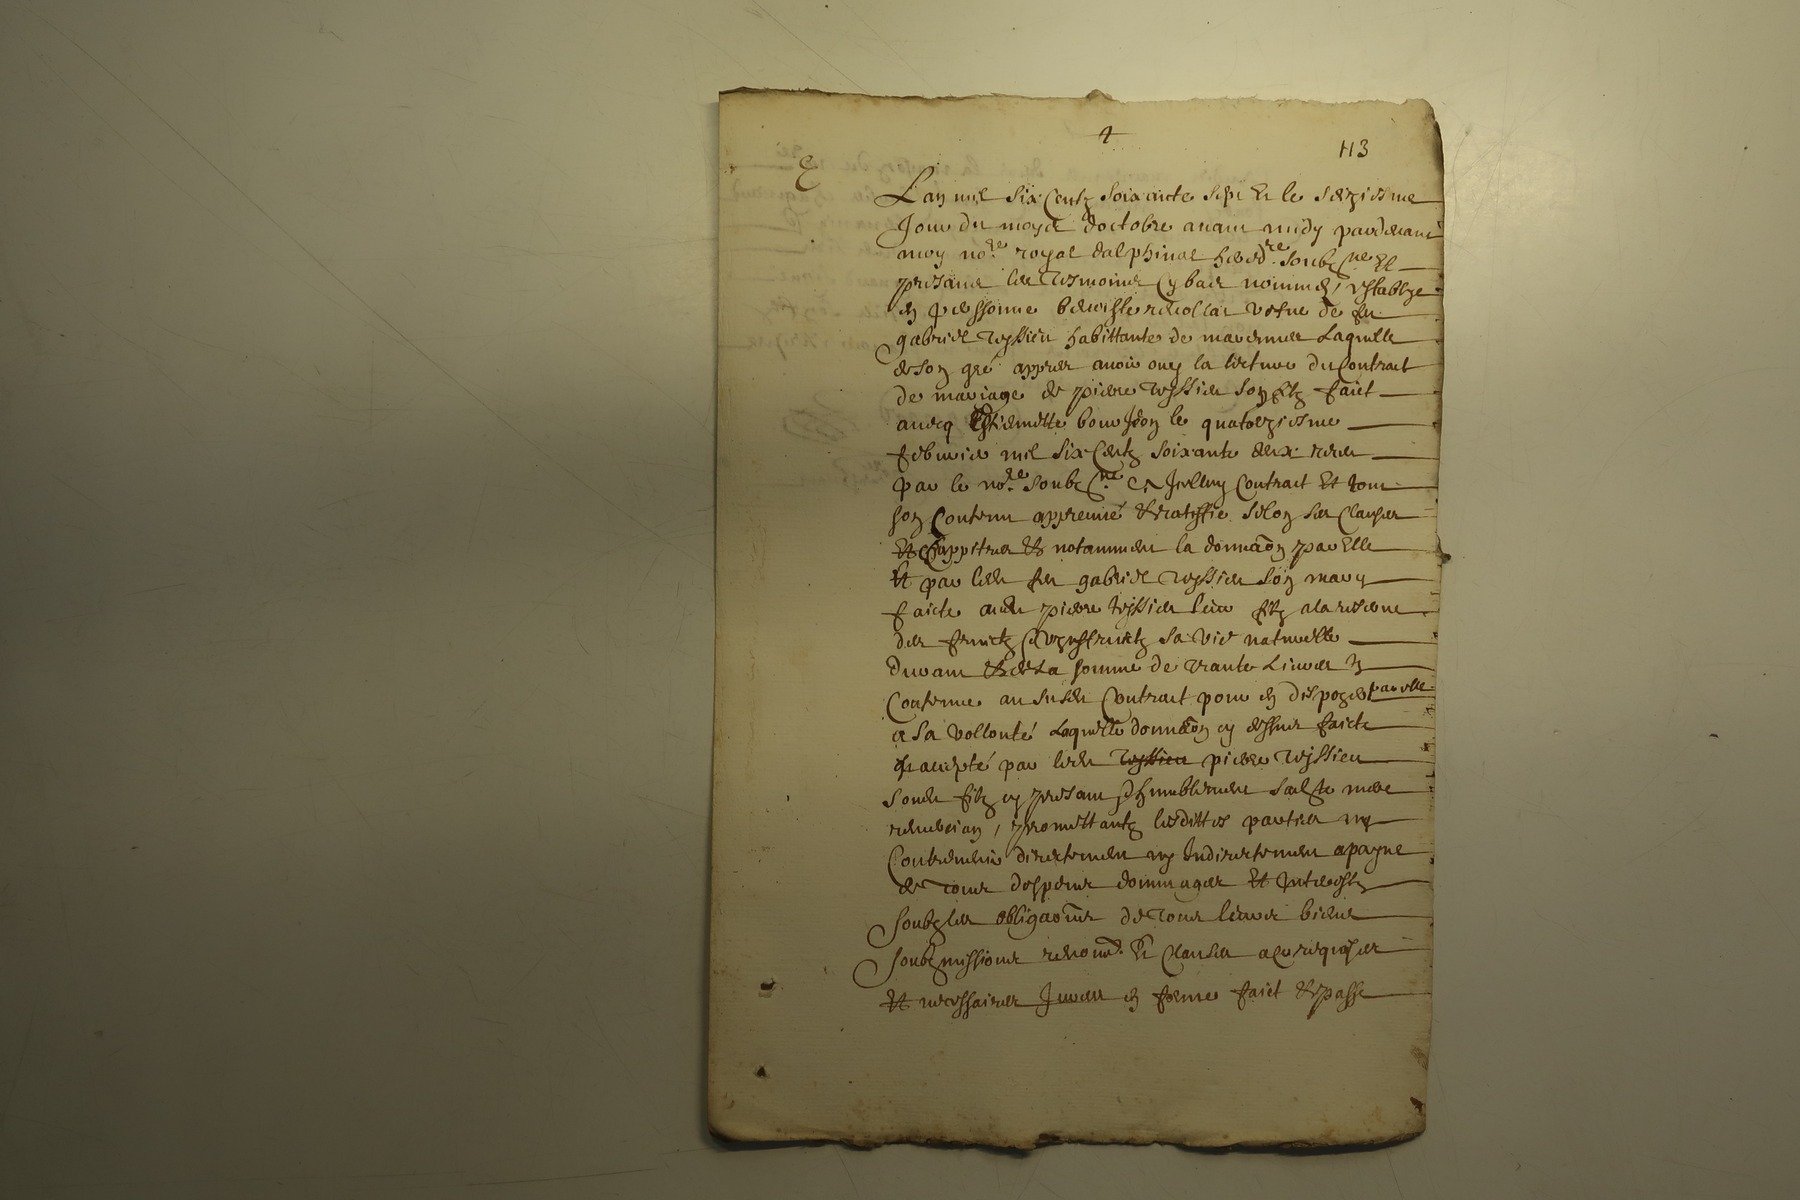 4
113
Lan mil six centz soixante sept et le seiziesme
Jour du moys doctobre avant midy pardevant
moy no.re royal dalphinal hered.re soubz.ne et
presans les tesmoins cy bas nommés, establye
en personne vefve de feu
gabriel teyssier habittante de laquelle
de son gré appres avoir ouy la lecture du Contract
de mariage de pierre teyssier son filz faict
avecq le quatorziesme
febvrier mil six centz soixante deux receu
par le no.re soubz.ne Icelluy Contract et tout
son Contenu appreuvé et ratiffie selon ses clauses
et chappitres et notamment la donnãon par elle
et par ledit feu gabriel teyssier son mary
faicte audit pierre teyssier leur filz a la reserve
des fruictz et uzuffruictz sa vie naturelle
durant et de la somme de trante livres
Contenue au susdit Contract pour en dispozer par elle
a sa vollonté laquelle donnãon cy dessus faicte
accepté par ledit teyssier pierre teyssier
son dit filz cy presant et humblement sadite mere
remercian, promettantz lesdittes parties ny
Contrevenir directement ny Indirectement a payne
de tous despens dommages et interestz
soubz les obligaõns de tous leurs biens
soubzmissions renon.ns et clauses a ce requizes
et necessaires Jurées en forme faict et passé